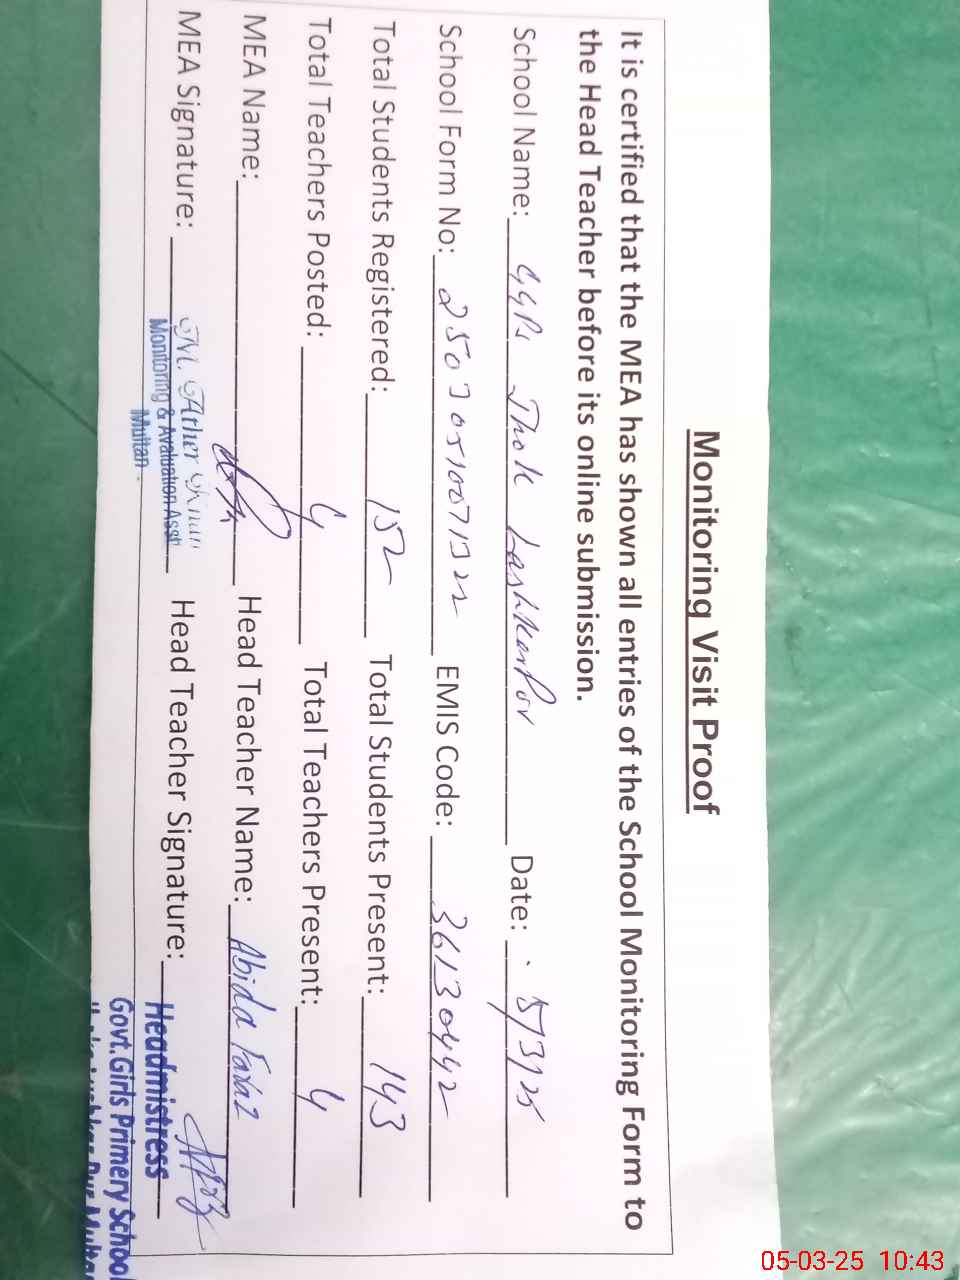 Monitoring Visit Proof
It is certified that the MEA has shown all entries of the School Monitoring Form to
the Head Teacher before its online submission.
School Name: GGPS Thok Lashkarpur Date: 5/3/25
School Form No: EMIS Code: 36130442
Total Students Registered: 152 Total Students Present: 143
Total Teachers Posted: 4 Total Teachers Present: 4
MEA Name: Head Teacher Name: Abida Faraz
MEA Signature: Head Teacher Signature:
M. Ather
Monitoring & Avaluation Asst
Multan
Headmistress
Govt.Girls Primery School
05-03-25 10:43